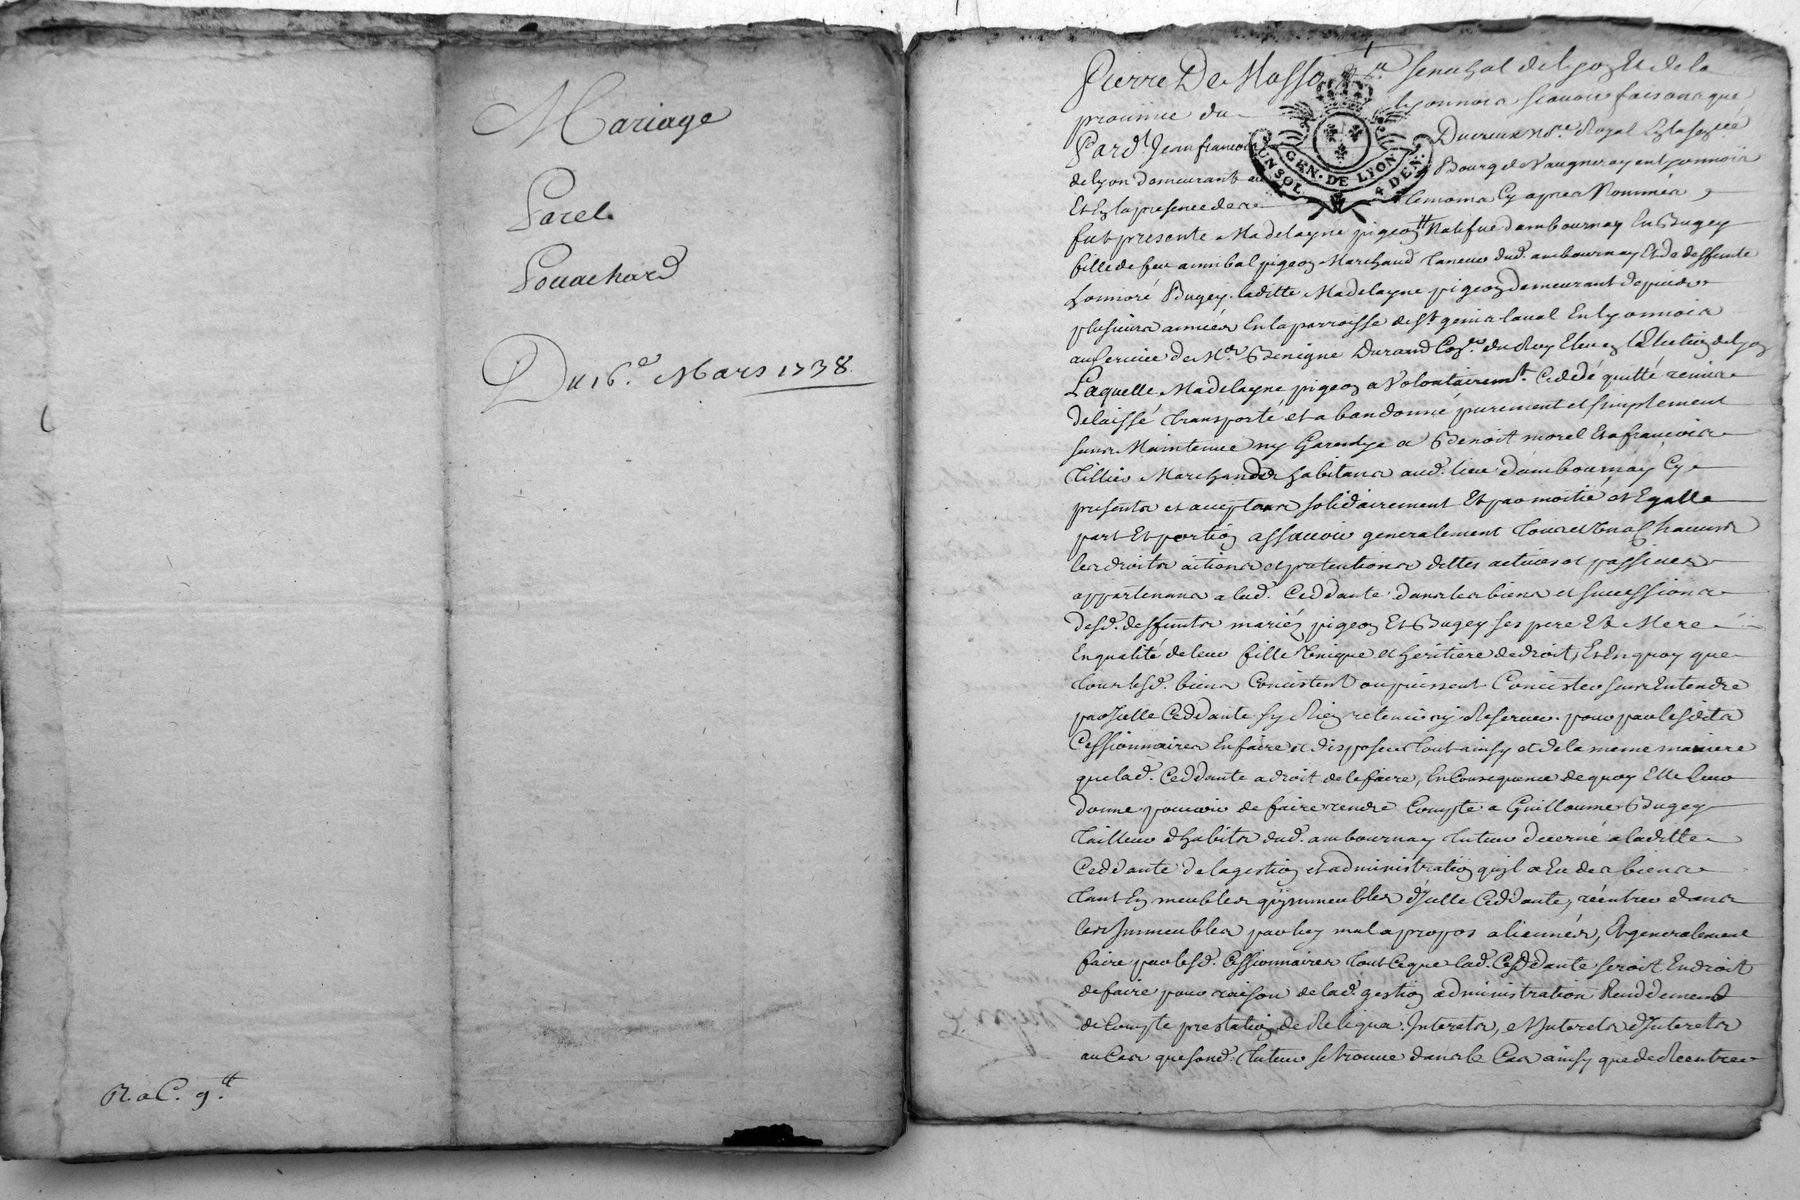 Mariage
Parel
Pouachard
Du 16.e Mars 1738
R. a C. 9.tt
Pierre De Masso senechal de lyon Et de la
prouince du lyonnois scauoir faisons que
Pard.t Jean francois Ducreux no.re Royal En la senec.ée
de lyon demeurant au Bourg de Vaugneray en lyonnois
Et En la presence des temoins Cy apres Nommés
GEN. DE LYON
UN SOL 4 DEN.
fut presente Madelayne pigeon Natifue dambournay En Bugey
fille de feu annibal pigeon Marchand Taneur dud. ambournay Et de deffunte
honnoré Bugey laditte Madelayne pigeon demeurant depuis
plusieurs années En la parroisse de St. genis laual En lyonnois
au seruice de Mr. Benigne Durand Con.er du Roy Eleu en l'Election de lyon
Laquelle Madelayne pigeon a Volontairemt. Cedé quitté remis
délaissé transporté et abandonné purement et simplement
sans Maintenue ny Garendye a Benoit morel Et a francois
Tillier Marchands habitans aud. lieu d'ambournay Cy
presents et acceptans solidairement Et par moitié et Egalle
part Et portion assauoir generalement tous et Un Chacuns
les droits actions et pretentions dettes actiues et passiues
appartenans a lad. Ceddante dans les biens et sucessions
desd. deffunts mariés pigeon Et Bugey ses pere Et Mere
En qualité de leur fille Unique et heritiere de droit, Et En quoy que
tous lesd. biens Consistent ou puissent Consister sans Entendre
par Icelle Ceddante sy Rien retenir ny Reseruer pour par lesdits
Cessionnaires En faire et disposer tout ainsy et de la meme maniere
que lad. Ceddante a droit de le faire, En Consequence de quoy Elle leur
donne pouuoir de faire rendre Compte a Guillaume Bugey
Tailleur d'habits dud. ambournay tuteur decerné a laditte
Ceddante de la gestion et administration qu'il a Eu des biens
tant En meubles qu'immeubles d'Icelle Ceddante, réentrer dans
les Immeubles par luy mal a propos aliennés, Et generalement
faire par lesd. Cessionnaires tout Ce que lad. Ceddante seroit En droit
de faire pour raison de lad. gestion administration Renddement
de Compte prestation de Reliqua Interets, et Interets d'Interets
au Cas que sond. tuteur se trouue dans le Cas ainsy que de Reentrer